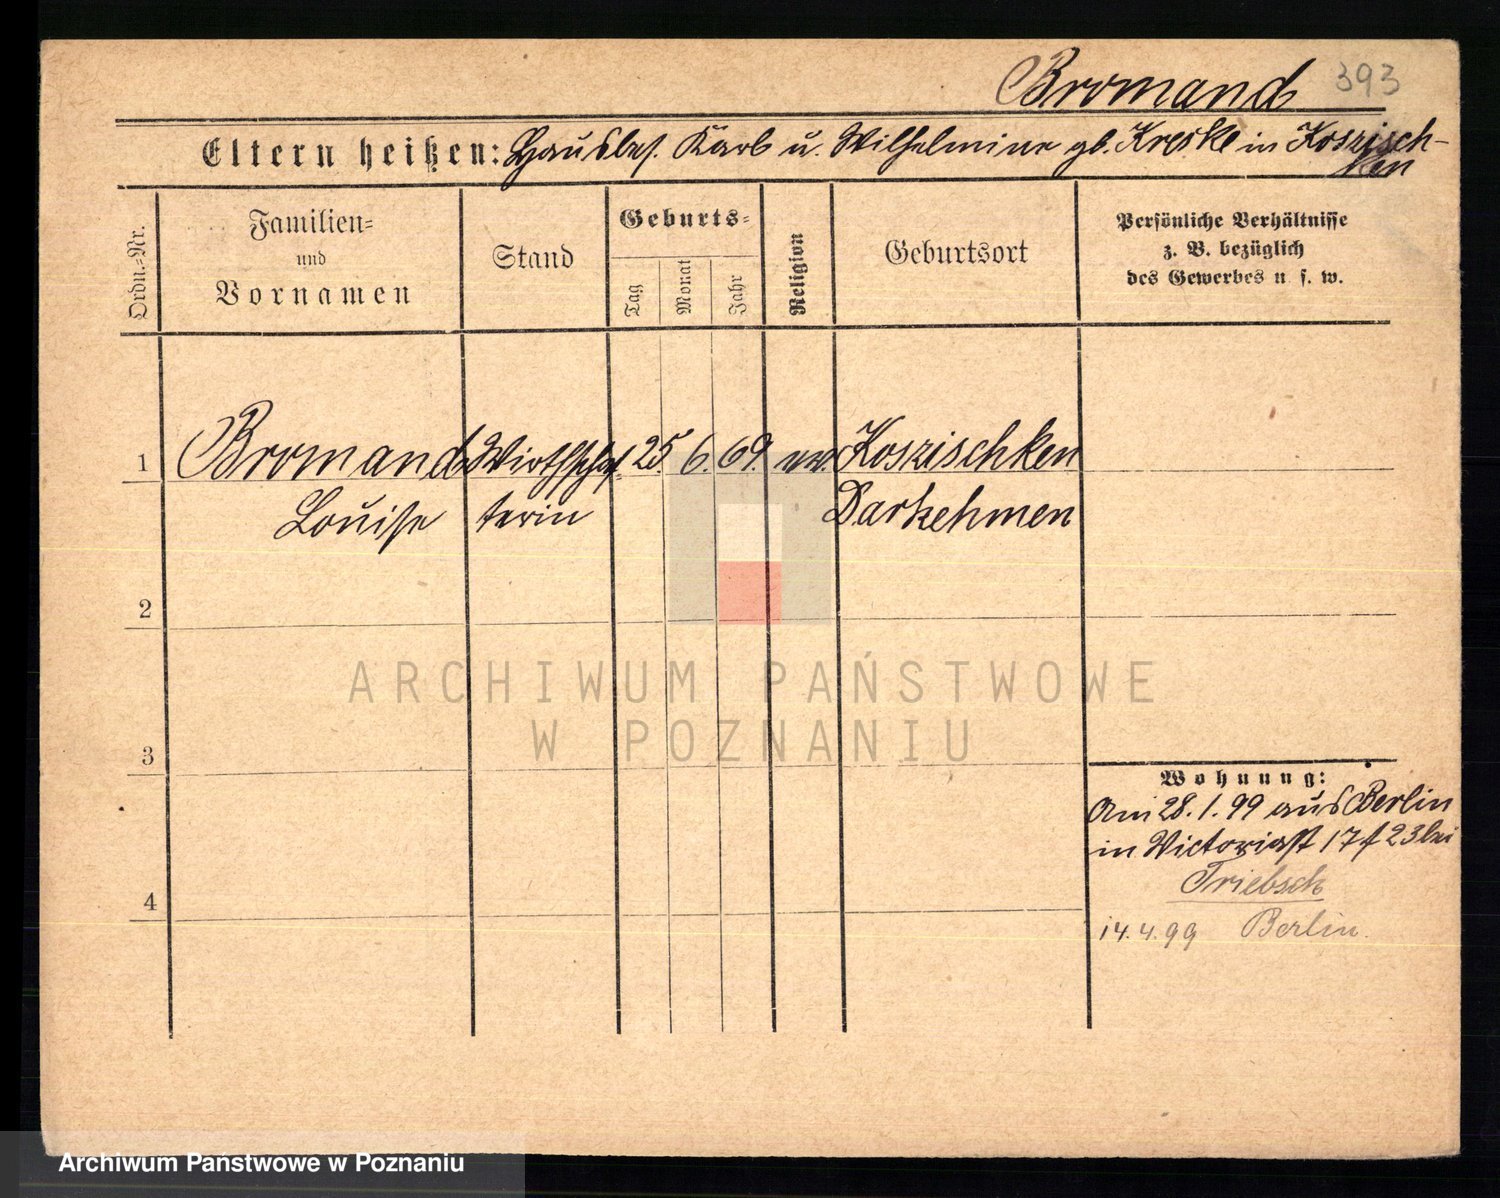 Bromand 393
Eltern heißen: Hausbes. Karl u. Wilhelmine gb. Kreske in Koszisch-
ken
Ordn.-Nr.
Familien-
und
Vornamen
Stand
Geburts-
Tag
Monat
Jahr
Religion
Geburtsort
Persönliche Verhältnisse
z. B. bezüglich
des Gewerbes u. s. w.
1 Bromand Wirthschaf- 25. 6. 69. ev. Koszischken
Louise terin Darkehmen
2
ARCHIWUM PAŃSTWOWE
W POZNANIU
3
Wohnung:
Am 28.1.99 aus Berlin
in Victoriast 17 23 bei
Triebsch
4
14.4.99 Berlin.
Archiwum Państwowe w Poznaniu